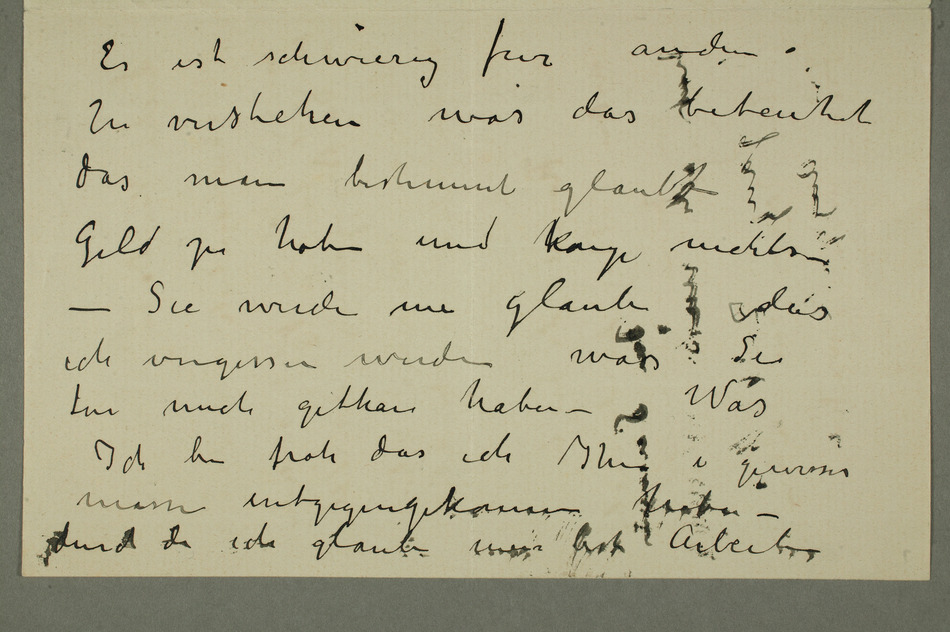 Es ist schwierig für anden
zu verstehen was das beteutet
das man bestimmt glaubt
Geld zu haben und kriege nichts
— Sie werde nie glaube das
ich vergessen werden was Sie
für mich gethan haben — Was
Ich bin froh das ich Ihn i gewisser
masse entgegengekommen haben —
durch da ich glaube Arbeiten